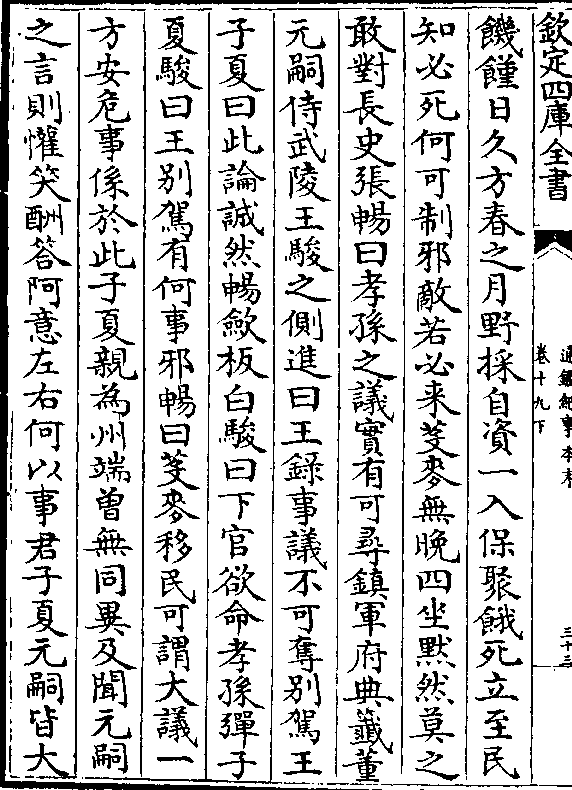 欽定四庫全書
通鑑紀事本末
卷十九下
三十三
饑饉日久方春之月野採自資一入保聚餓死立至民
知必死何可制邪敵若必来芟麥無晩四坐黙然莫之
敢對長史張暢曰孝孫之議實有可尋鎮軍府典籖董
元嗣侍武陵王駿之側進曰王錄事議不可奪别駕王
子夏曰此論誠然暢歛板白駿曰下官欲命孝孫彈子
夏駿曰王别駕有何事邪暢曰芟麥移民可謂大議一
方安危事係於此子夏親為州端曽無同異及聞元嗣
之言則懽笑酬答阿意左右何以事君子夏元嗣皆大